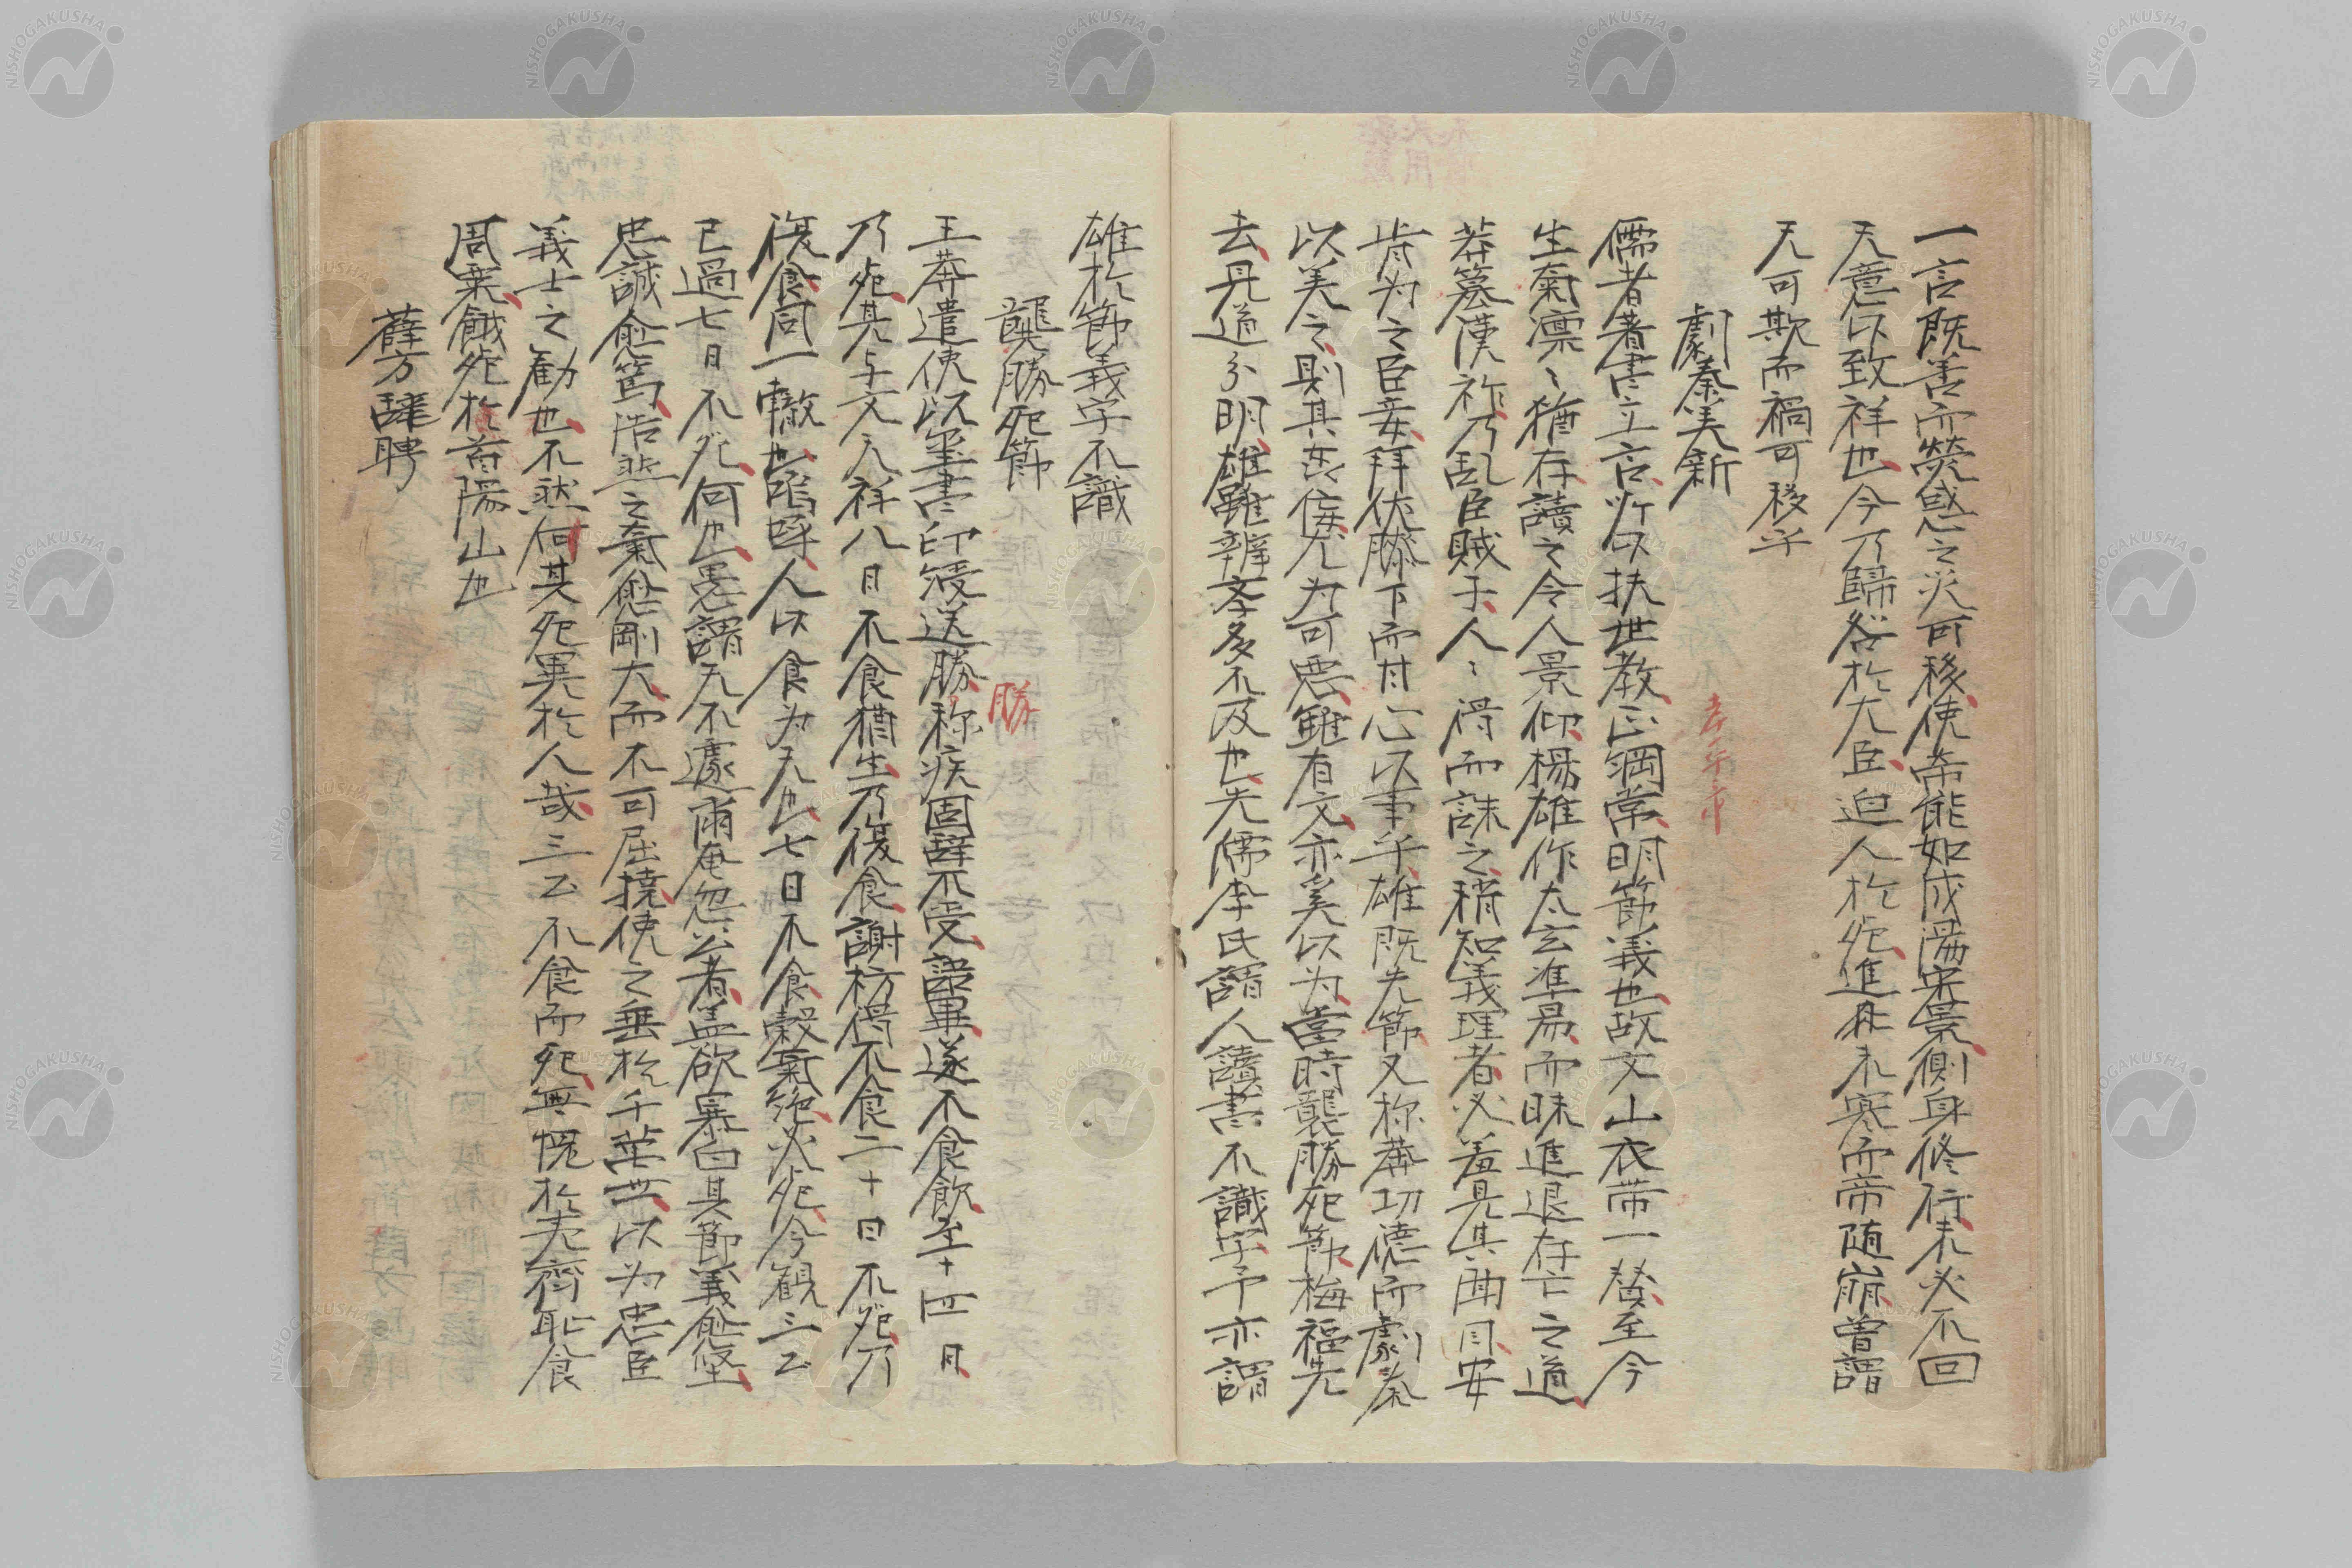 一言既善而熒惑之災可移使帝能如成湯宋景側身修行未必不回
天意以致祥也今乃歸咎於大臣迫人於死進肉未寒而帝随崩曽謂
天可欺而禍可移乎
劇秦美新
儒者著書立言所以扶世教正綱常明節義也故文山衣帯一賛至今
生氣凛〻猶存讀之令人景仰楊雄作太玄準易而昧進退存亡之道
莽簒漢祚乃乱臣賊子人〻得而誅之稍知義理者必羞見其面目安
肯为之臣妾拜伏膝下而甘心以事乎雄既失節又称莽功徳而劇秦
以美之則其喪侮尤为可悪雖有文亦奚以为當時龔勝死節梅福先
去丹道分明雄雖辨李多不及也先儒李氏謂人讀書不識字予亦謂
雄於節義字不識
龔勝死節
勝
王莽遣使以璽書印綬送勝称疾固辞不受語畢遂不食飲至十四日
乃死其与文天祥八日不食猶生乃復食謝枋得不食二十日不死乃
復食同一轍也啗啄人以食为天也七日不食穀氣絶必死今観三公
已過七日不死何也愚謂天不遽爾奄忽公者盖欲暴白其節義愈堅
忠誠愈篤浩然之氣愈剛大而不可屈撓使之垂於千萬世以为忠臣
義士之勧也不然何其死異於人哉三公不食而死無愧於夷齊恥食
周粟餓死於首陽山也
薛方辞聘